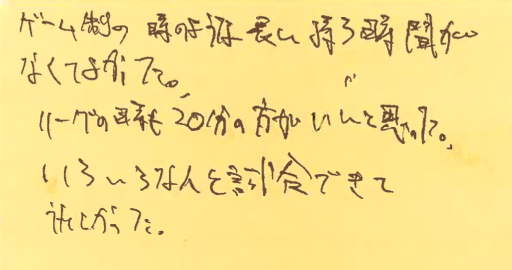 ゲーム制の時のような長い待ち時間が
なくてよかった。
リーグの時も20分の方がいいと思った。
いろいろな人と試合できて
よかった。